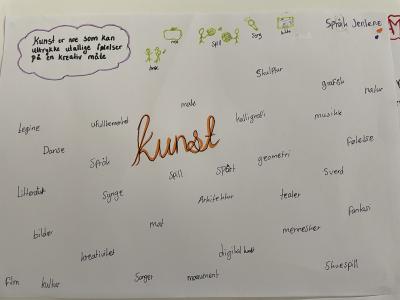 Kunst er noe som kan
uttrykke utallige følelser
på en kreativ måte
mat
Spill
Sorg
bilde
Språk Jentene
dans
skulptur
grafisk
natur
male
Legine
ufullkommenhet
kalligrafi
musikk
kunst
Danse
følelse
Språk
geometri
Spill
Språk
Sverd
Litteratur
Synge
Arkitektur
teater
fantasi
bilder
mat
mennesker
kreativitet
digital kunst
Skuespill
film
kultur
Sanger
monument